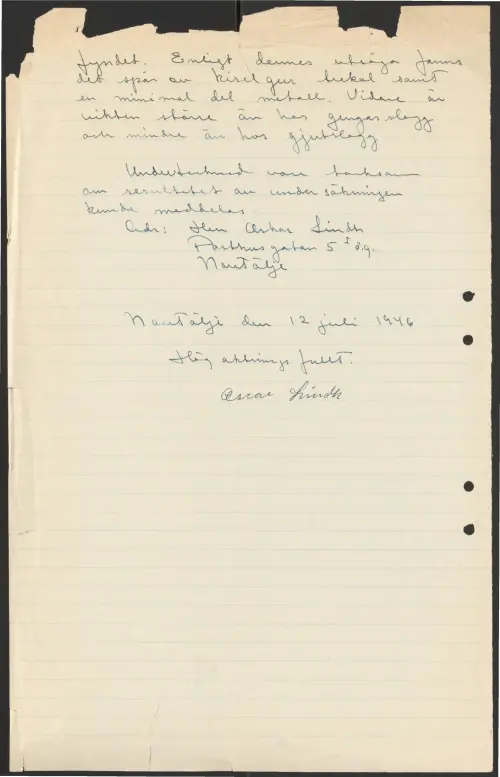 fyndet. Enligt dennes utsago fanns
det spår av kiselgur, bekol samt
en minimal del metall. Vidare är
vikten större än hos gengasslagg
och mindre än hos gjutslagg
Undertecknad vore tacksam
om resultatet av undersökningen
kunde meddelas
Adr: Herr Oskar Lindh
Posthusgatan 5 I ö.g.
Norrtälje
Norrtälje den 12 juli 1946
Högaktningsfullt.
Oscar Lindh